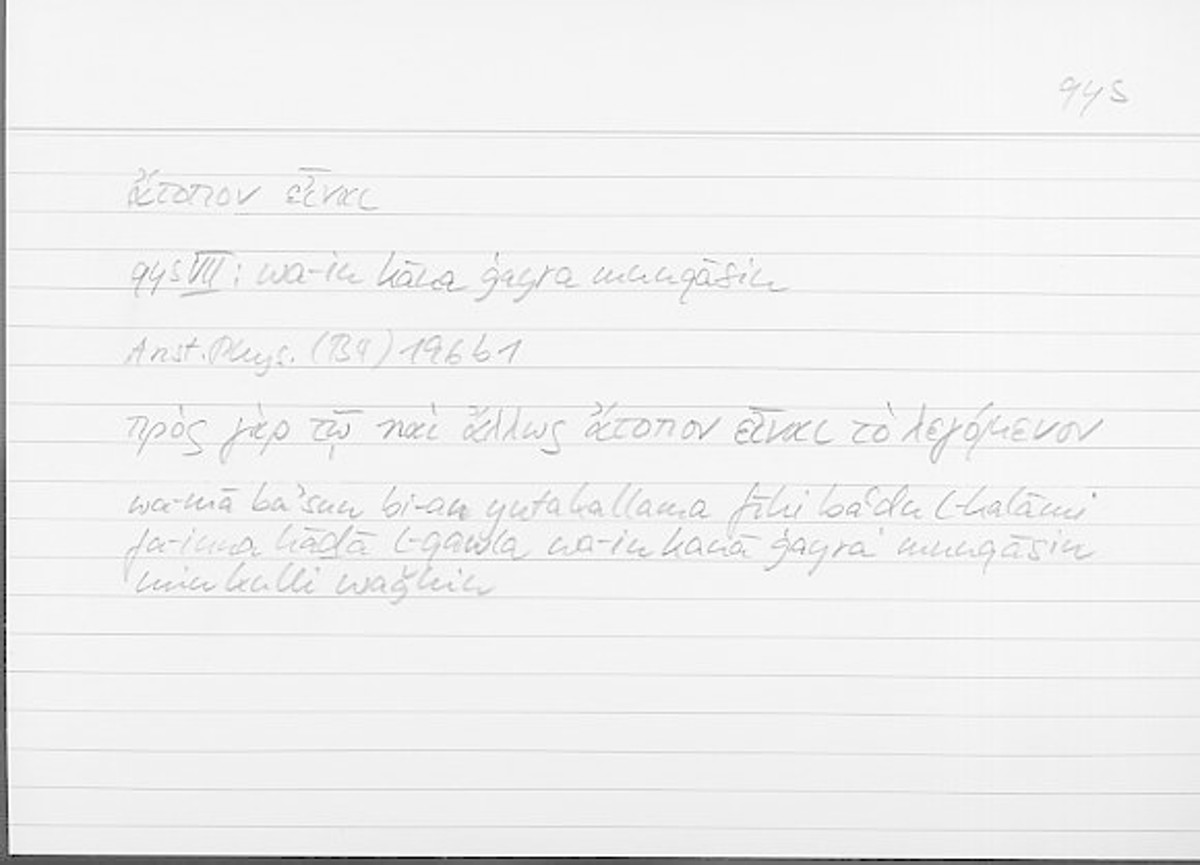 qys
ἄτοπον εἶναι
qys VII: wa-in kāna ġayra munqāsin
Arist. Phys. (B4) 196b1
πρὸς γὰρ τῷ καὶ ἄλλως ἄτοπον εἶναι τὸ λεγόμενον
wa-mā ba'sun bi-an yutakallama fīhi ba'ḍu l-kalāmi
fa-inna hāḏā l-qawla wa-in kanā ġayra munqāsin
min kulli waǧhin